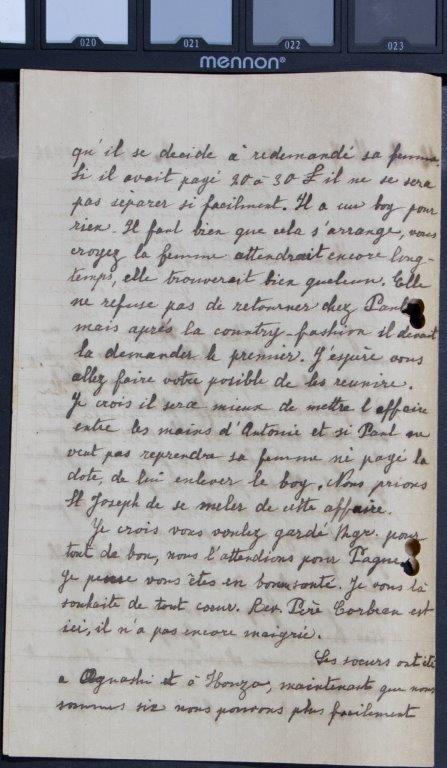 020 021 022 023
mennon®
qu'il se decide à redemandé sa femme.
Si il avait payé 20 à 30 £ il ne se sera
pas séparer si facilment. Il a eu boy pour
rien. Il faut bien que cela s'arrange, vous
croyez la femme attendrait encore long-
temps, elle trouverait bien quelcun. Elle
ne refuse pas de retourner chez Paul
mais après la country-fashion il devait
la demander le premier. J'espère vous
allez faire votre posible de les reunire.
Je crois il sera mieux de mettre l'affaire
entre les mains d'Antonie et si Paul ne
veut pas reprendra sa femme ni payé la
dote, de lui enlever le boy. Nous prions
St Joseph de se meler de cette affaire.
Je crois vous voulez gardé Mgr. pour
tout de bon, nous l'attendions pour
Je pense vous êtes en bonn santé. Je vous la
souhaite de tout coeur. Rev. Père Corbeau est
ici, il n'a pas encore maigrie.
Les soeurs ont été
a à Ibouza, maintenant que nous
sommes six nous pouvons plus facilement